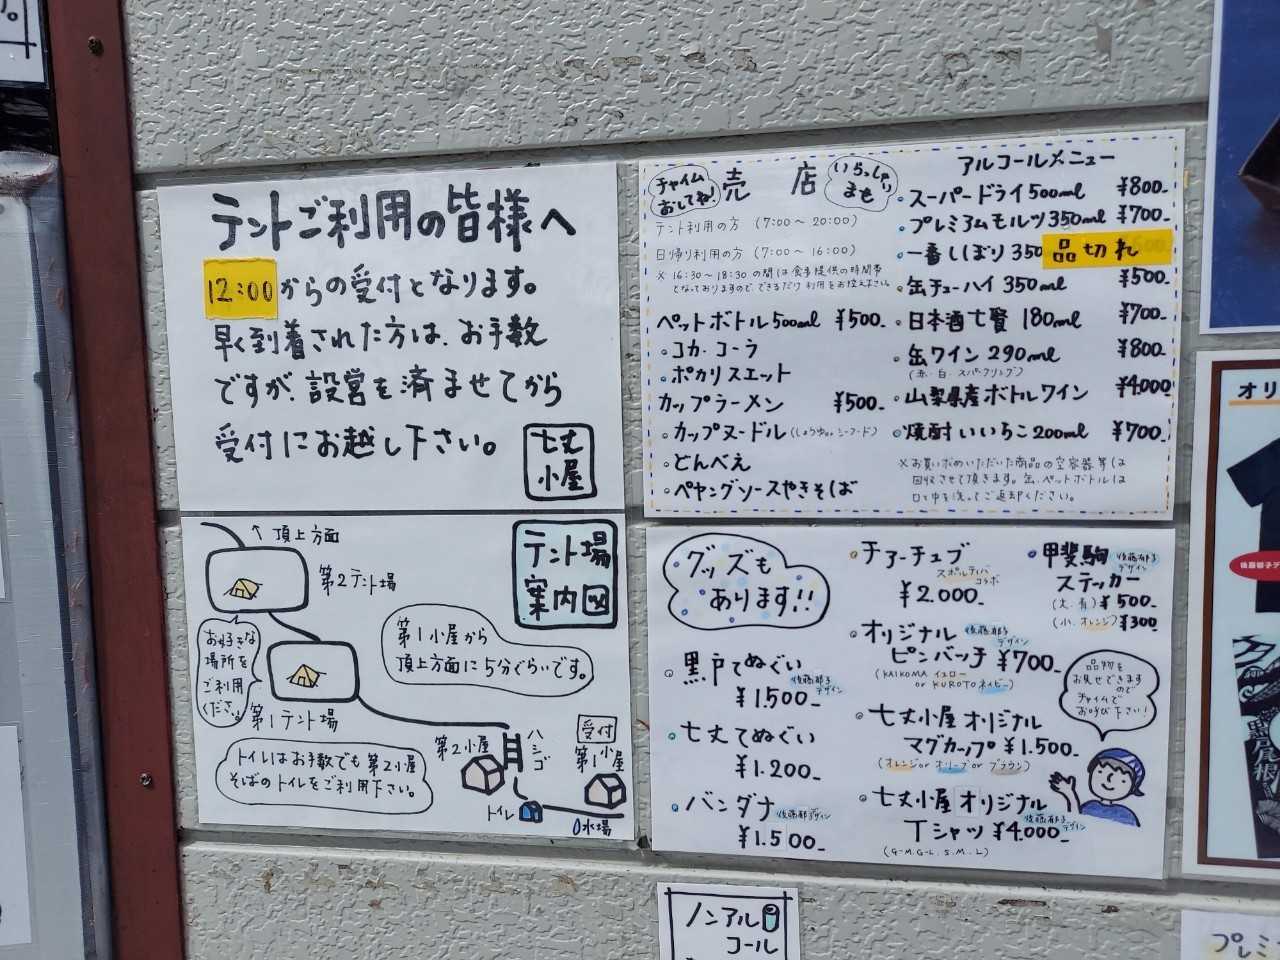 テントご利用の皆様へ
12:00からの受付となります。
早く到着された方は、お手数
ですが、設営を済ませてから
受付にお越し下さい。
七丈
小屋
↑頂上方面
テント場
案内図
第2テント場
お好きな
場所を
ご利用
ください。
第1小屋から
頂上方面に5分ぐらいです。
第1テント場
トイレはお手数でも第2小屋
そばのトイレをご利用下さい。
第2小屋
ハシゴ
受付
第1小屋
トイレ
水場
チャイム
おしてね!
売店
いらっしゃり
ませ
テント利用の方 (7:00～20:00)
日帰り利用の方 (7:00～16:00)
※16:30～18:30の間は食事提供の時間帯
となっておりますので、できるだけ利用をお控え下さい。
ペットボトル500ml ¥500-
・コカ・コーラ
・ポカリスエット
カップラーメン ¥500-
・カップヌードル(しょうゆor シーフード)
・どんべえ
・ペヤングソースやきそば
アルコールメニュー
・スーパードライ500ml ¥800-
・プレミアムモルツ350ml ¥700-
・一番しぼり350 品切れ
・缶チューハイ350ml ¥500-
・日本酒七賢 180ml ¥700-
・缶ワイン290ml ¥800-
(赤・白・スパークリング)
・山梨県産ボトルワイン ¥4.000-
・焼酎いいちこ200ml ¥700-
※お買い求めいただいた商品の空容器等は
回収させて頂きます。缶、ペットボトルは
口と中を洗ってご返却ください。
グッズも
あります!!
・黒戸てぬぐい
後藤郁子
デザイン
¥1.500-
・七丈てぬぐい
¥1.200-
・バンダナ
後藤郁子デザイン
¥1.500-
・チアーチューブ
スポルティバ
コラボ
¥2.000-
・オリジナル
後藤郁子
デザイン
ピンバッチ ¥700-
(KAIKOMA イエロー
or KUROTO ネイビー)
・七丈小屋オリジナル
マグカップ ¥1.500-
(オレンジ or オリーブ or ブラウン)
・七丈小屋オリジナル
後藤郁子
デザイン
Tシャツ ¥4.000-
(G-M.G-L.S.M.L)
・甲斐駒
後藤郁子
デザイン
ステッカー
(大.青) ¥500-
(小.オレンジ) ¥300
品物を
お見せできます
ので
チャイムで
お呼び下さい!
ノンアル
コール
オリ
プレミ
黒戸尾根